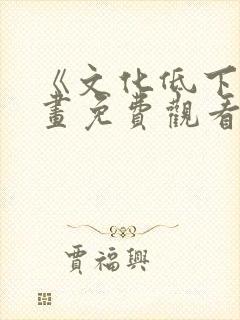 《文化低下
畫免費觀看
賈福興